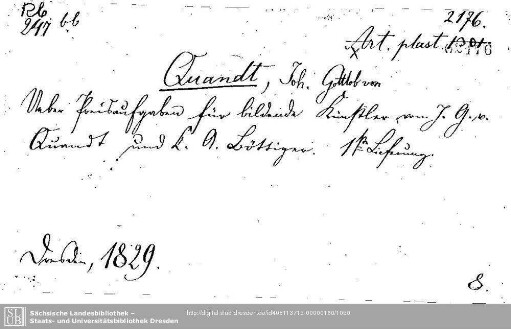 Rb 2176.
247 bb
Art. plast. 
Quandt, Joh. Gottlob von
Ueber Preisaufgaben für bildende Künstler von J. G. v.
Quandt und C. A. Böttiger. 1te Lieferung.
Dresden, 1829.
8.
SLUB Sächsische Landesbibliothek –
Staats- und Universitätsbibliothek Dresden